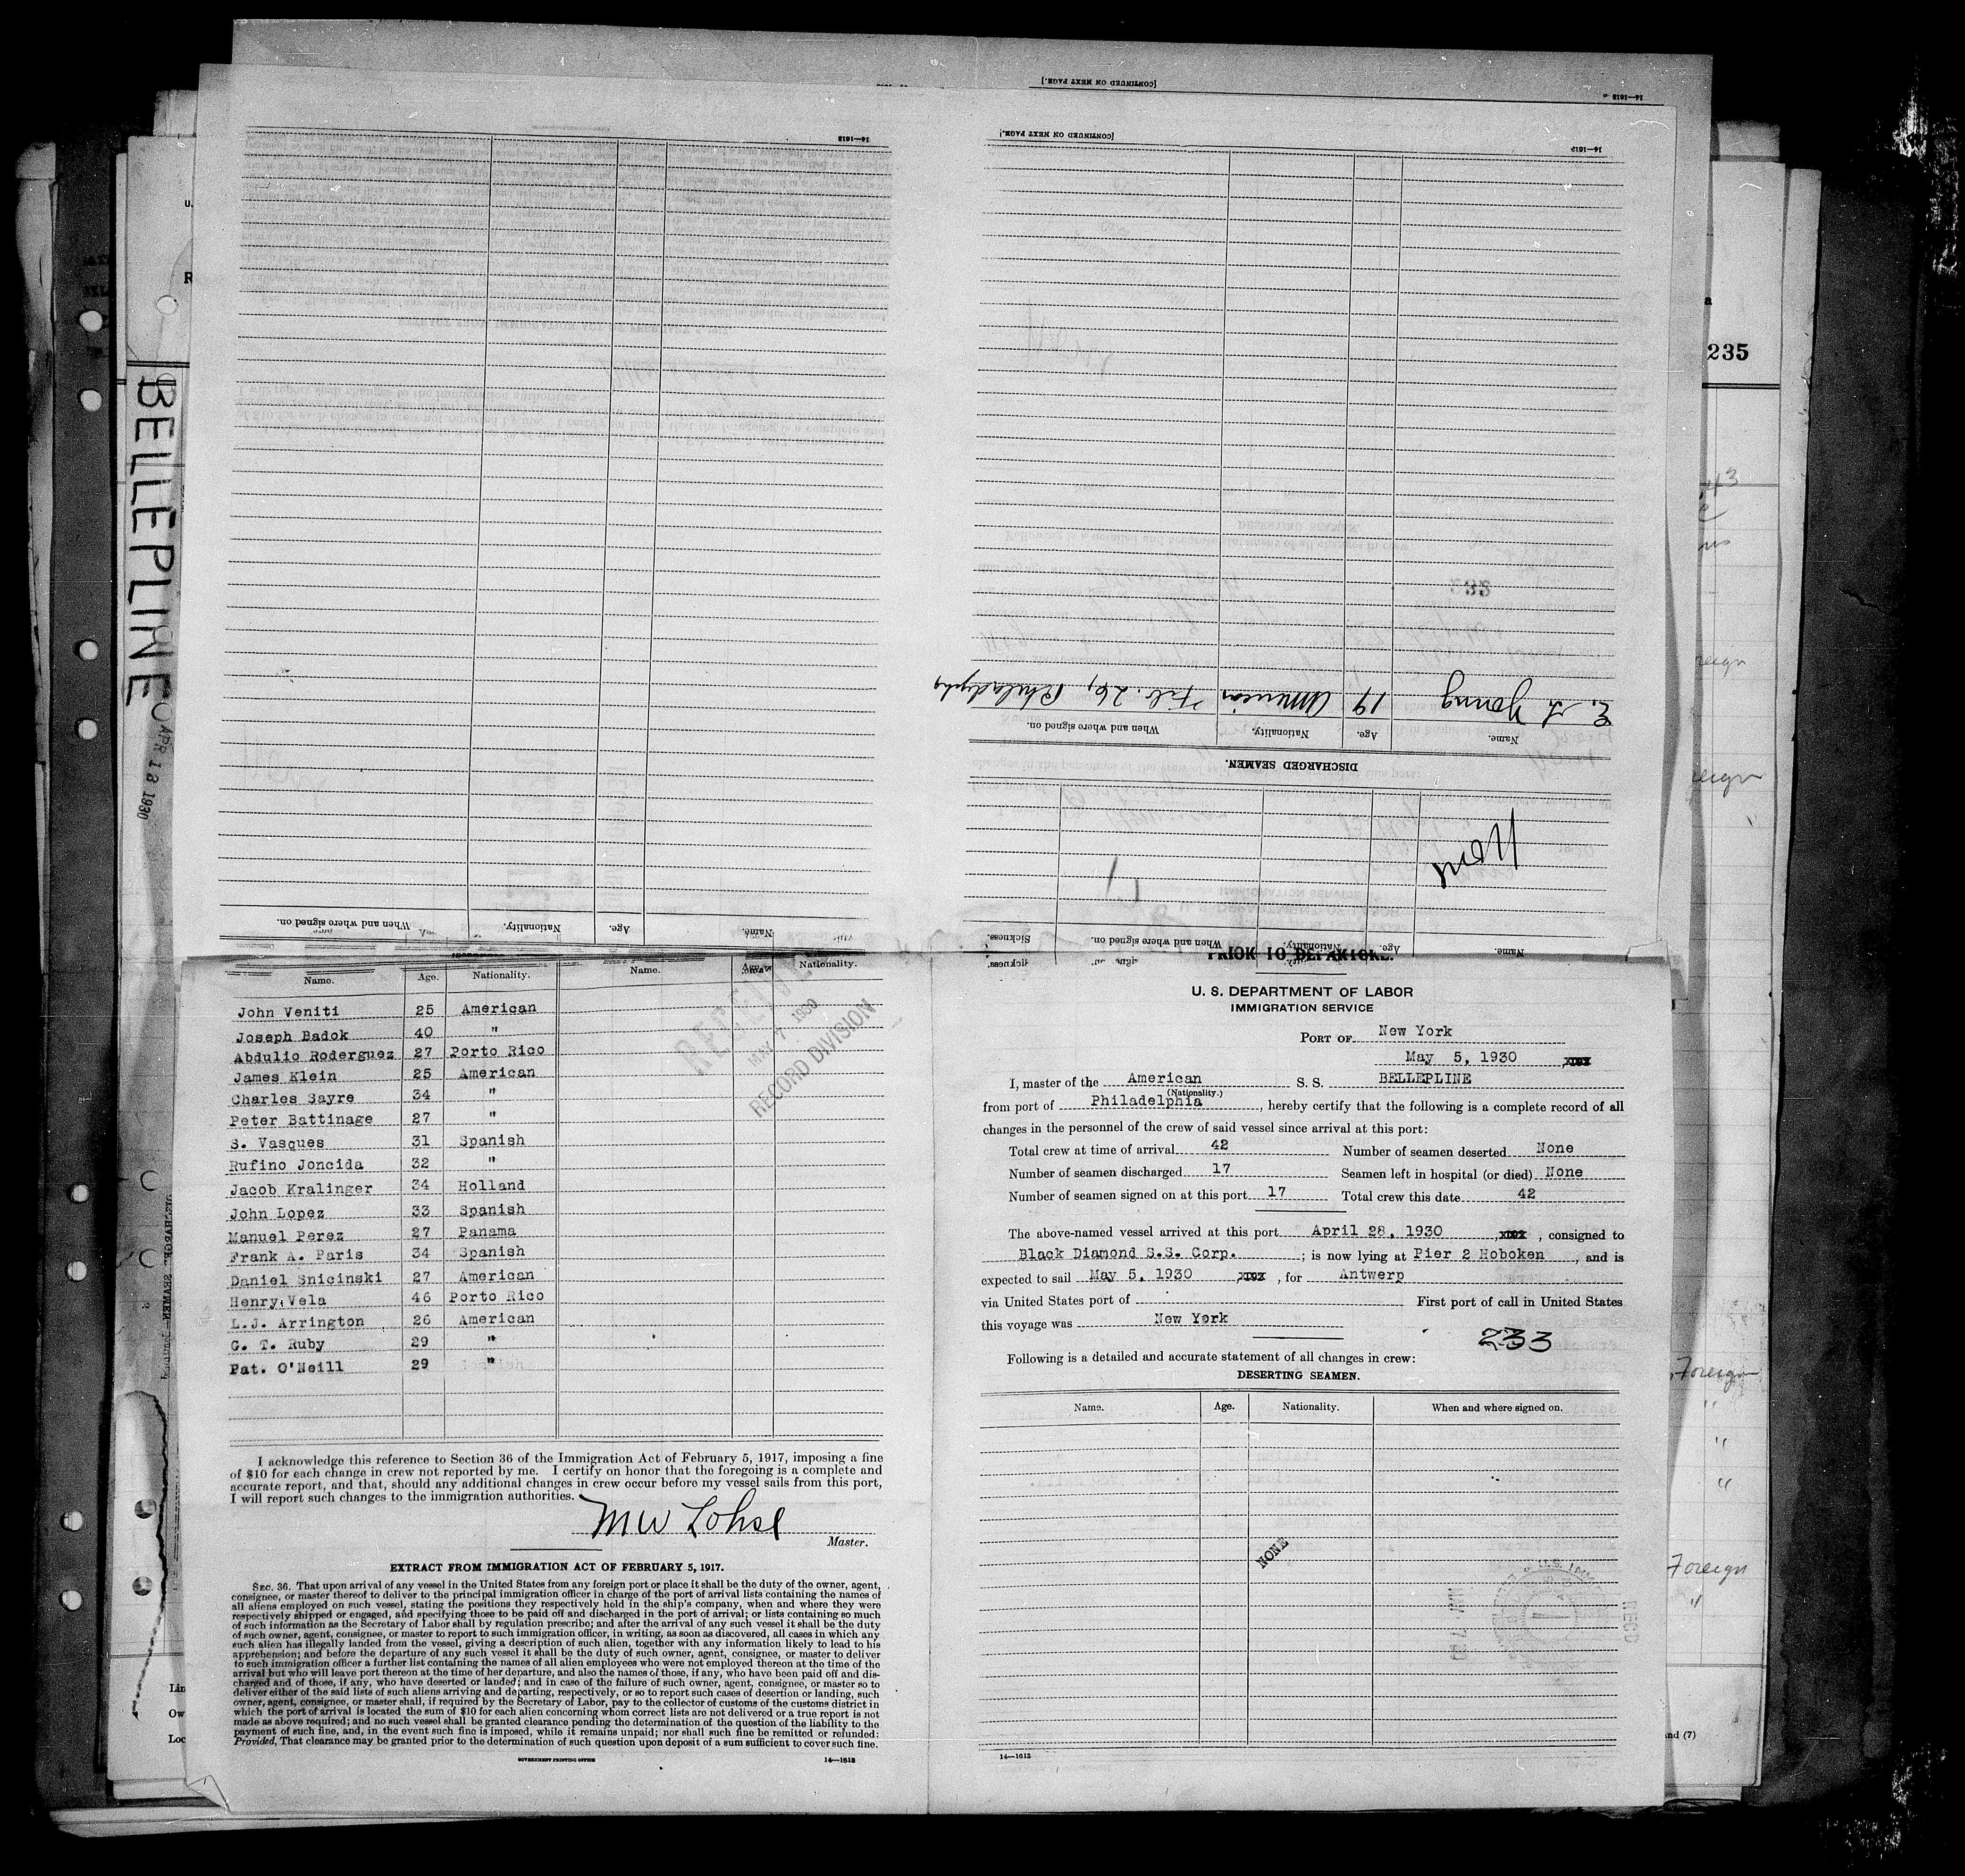 [CONTINUED ON NEXT PAGE.]
14—1613
[CONTINUED ON NEXT PAGE.]
14—1613
14—1613
235
BELLEPLINE
APR 18 1930
E. L. Young 19 American Feb. 26, Philadelphia
Name. Age. Nationality. When and where signed on.
DISCHARGED SEAMEN.
None
Name. Age. Nationality. When and where signed on. Sickness.
Name. Age. Nationality. When and where signed on.
Name. Age. Nationality. Name. Nationality.
John Veniti 25 American
Joseph Badok 40 "
Abdulio Roderguez 27 Porto Rico
James Klein 25 American
Charles Sayre 34 "
Peter Battinage 27 "
S. Vasques 31 Spanish
Rufino Joncida 32 "
Jacob Kralinger 34 Holland
John Lopez 33 Spanish
Manuel Perez 27 Panama
Frank A. Paris 34 Spanish
Daniel Snicinski 27 American
Henry Vela 46 Porto Rico
L.J. Arrington 26 American
G. T. Ruby 29 "
Pat. O'Neill 29 "
RECEIVED
MAY 7 1930
RECORD DIVISION
I acknowledge this reference to Section 36 of the Immigration Act of February 5, 1917, imposing a fine
of $10 for each change in crew not reported by me. I certify on honor that the foregoing is a complete and
accurate report, and that, should any additional changes in crew occur before my vessel sails from this port,
I will report such changes to the immigration authorities.
M W Lohse
Master.
EXTRACT FROM IMMIGRATION ACT OF FEBRUARY 5, 1917.
SEC. 36. That upon arrival of any vessel in the United States from any foreign port or place it shall be the duty of the owner, agent,
consignee, or master thereof to deliver to the principal immigration officer in charge of the port of arrival lists containing the names of
all aliens employed on such vessel, stating the positions they respectively hold in the ship's company, when and where they were
respectively shipped or engaged, and specifying those to be paid off and discharged in the port of arrival; or lists containing so much
of such information as the Secretary of Labor shall by regulation prescribe; and after the arrival of any such vessel it shall be the duty
of such owner, agent, consignee, or master to report to such immigration officer, in writing, as soon as discovered, all cases in which any
such alien has illegally landed from the vessel, giving a description of such alien, together with any information likely to lead to his
apprehension; and before the departure of any such vessel it shall be the duty of such owner, agent, consignee, or master to deliver
to such immigration officer a further list containing the names of all alien employees who were not employed thereon at the time of the
arrival but who will leave port thereon at the time of her departure, and also the names of those, if any, who have been paid off and dis-
charged and of those, if any, who have deserted or landed; and in case of the failure of such owner, agent, consignee, or master so to
deliver either of the said lists of such aliens arriving and departing, respectively, or so to report such cases of desertion or landing, such
owner, agent, consignee, or master shall, if required by the Secretary of Labor, pay to the collector of customs of the customs district in
which the port of arrival is located the sum of $10 for each alien concerning whom correct lists are not delivered or a true report is not
made as above required; and no such vessel shall be granted clearance pending the determination of the question of the liability to the
payment of such fine, and, in the event such fine is imposed, while it remains unpaid; nor shall such fine be remitted or refunded:
Provided, That clearance may be granted prior to the determination of such question upon deposit of a sum sufficient to cover such fine.
GOVERNMENT PRINTING OFFICE 14—1613
PRIOR TO DEPARTURE.
U. S. DEPARTMENT OF LABOR
IMMIGRATION SERVICE
PORT OF New York
May 5, 1930
I, master of the American S. S. BELLEPLINE
(Nationality.)
from port of Philadelphia, hereby certify that the following is a complete record of all
changes in the personnel of the crew of said vessel since arrival at this port:
Total crew at time of arrival 42 Number of seamen deserted None
Number of seamen discharged 17 Seamen left in hospital (or died) None
Number of seamen signed on at this port 17 Total crew this date 42
The above-named vessel arrived at this port April 28, 1930, consigned to
Black Diamond S.S. Corp. ; is now lying at Pier 2 Hoboken, and is
expected to sail May 5, 1930, for Antwerp
via United States port of First port of call in United States
this voyage was New York
233
Following is a detailed and accurate statement of all changes in crew:
DESERTING SEAMEN.
Name. Age. Nationality. When and where signed on.
NONE
14—1613
Foreign
"
"
"
Foreign
"
and (7)